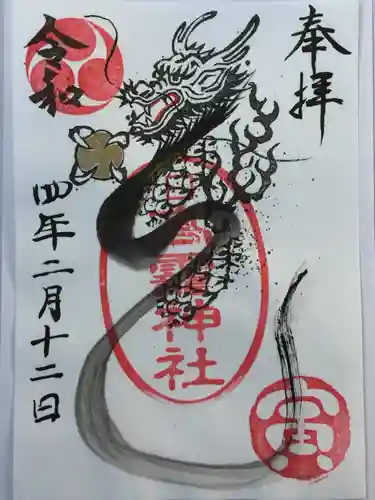 奉拝
令和
四年二月十二日
神社